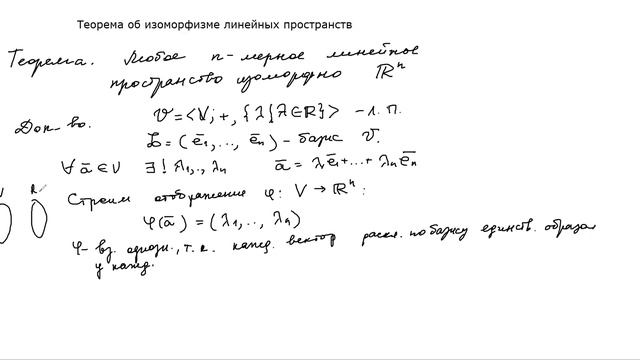 Теорема об изоморфизме линейных пространств
Теорема. Любое n-мерное линейное
пространство изоморфно ℝⁿ
Док-во. 𝒱=<V; +, {λ|λ∈ℝ}> – л. п.
ℒ=(ē₁,..., ēₙ) – базис 𝒱.
∀ā∈V ∃! λ₁,.., λₙ ā=λē₁+...+λₙēₙ
Строим отображение φ: V→ℝⁿ:
φ(ā)=(λ₁,.., λₙ)
φ- вз. одноз., т.к. кажд. вектор раскл. по базису единств. образом
у кажд.